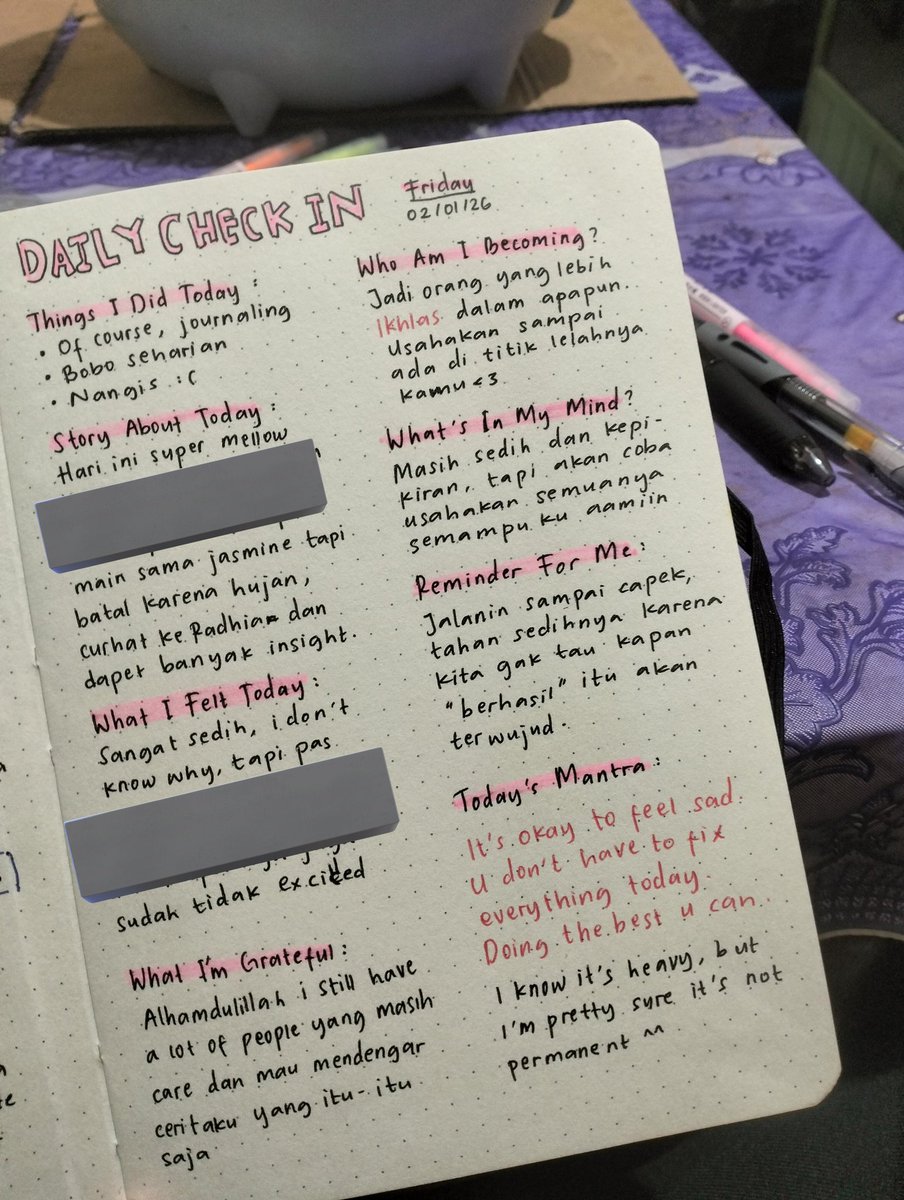 DAILY CHECK IN
Friday
02/01/26
Things I Did Today :
• Of course, journaling
• Bobo seharian
• Nangis :(
Story About Today :
Hari ini super mellow
main sama jasmine tapi
batal karena hujan,
curhat ke Radhia dan
dapet banyak insight.
What I Felt Today :
Sangat sedih, i don't
know why, tapi pas
sudah tidak excited
What I'm Grateful :
Alhamdulillah i still have
a lot of people yang masih
care dan mau mendengar
ceritaku yang itu-itu
saja
Who Am I Becoming?
Jadi orang yang lebih
ikhlas dalam apapun.
Usahakan sampai
ada di titik lelahnya
kamu <3
What's In My Mind?
Masih sedih dan kepi-
kiran, tapi akan coba
usahakan semuanya
semampu ku aamiin
Reminder For Me :
Jalanin sampai capek,
tahan sedihnya karena
kita gak tau kapan
"berhasil" itu akan
terwujud.
Today's Mantra :
It's okay to feel sad.
U don't have to fix
everything today.
Doing the best u can.
I know it's heavy, but
I'm pretty sure it's not
permanent ^^